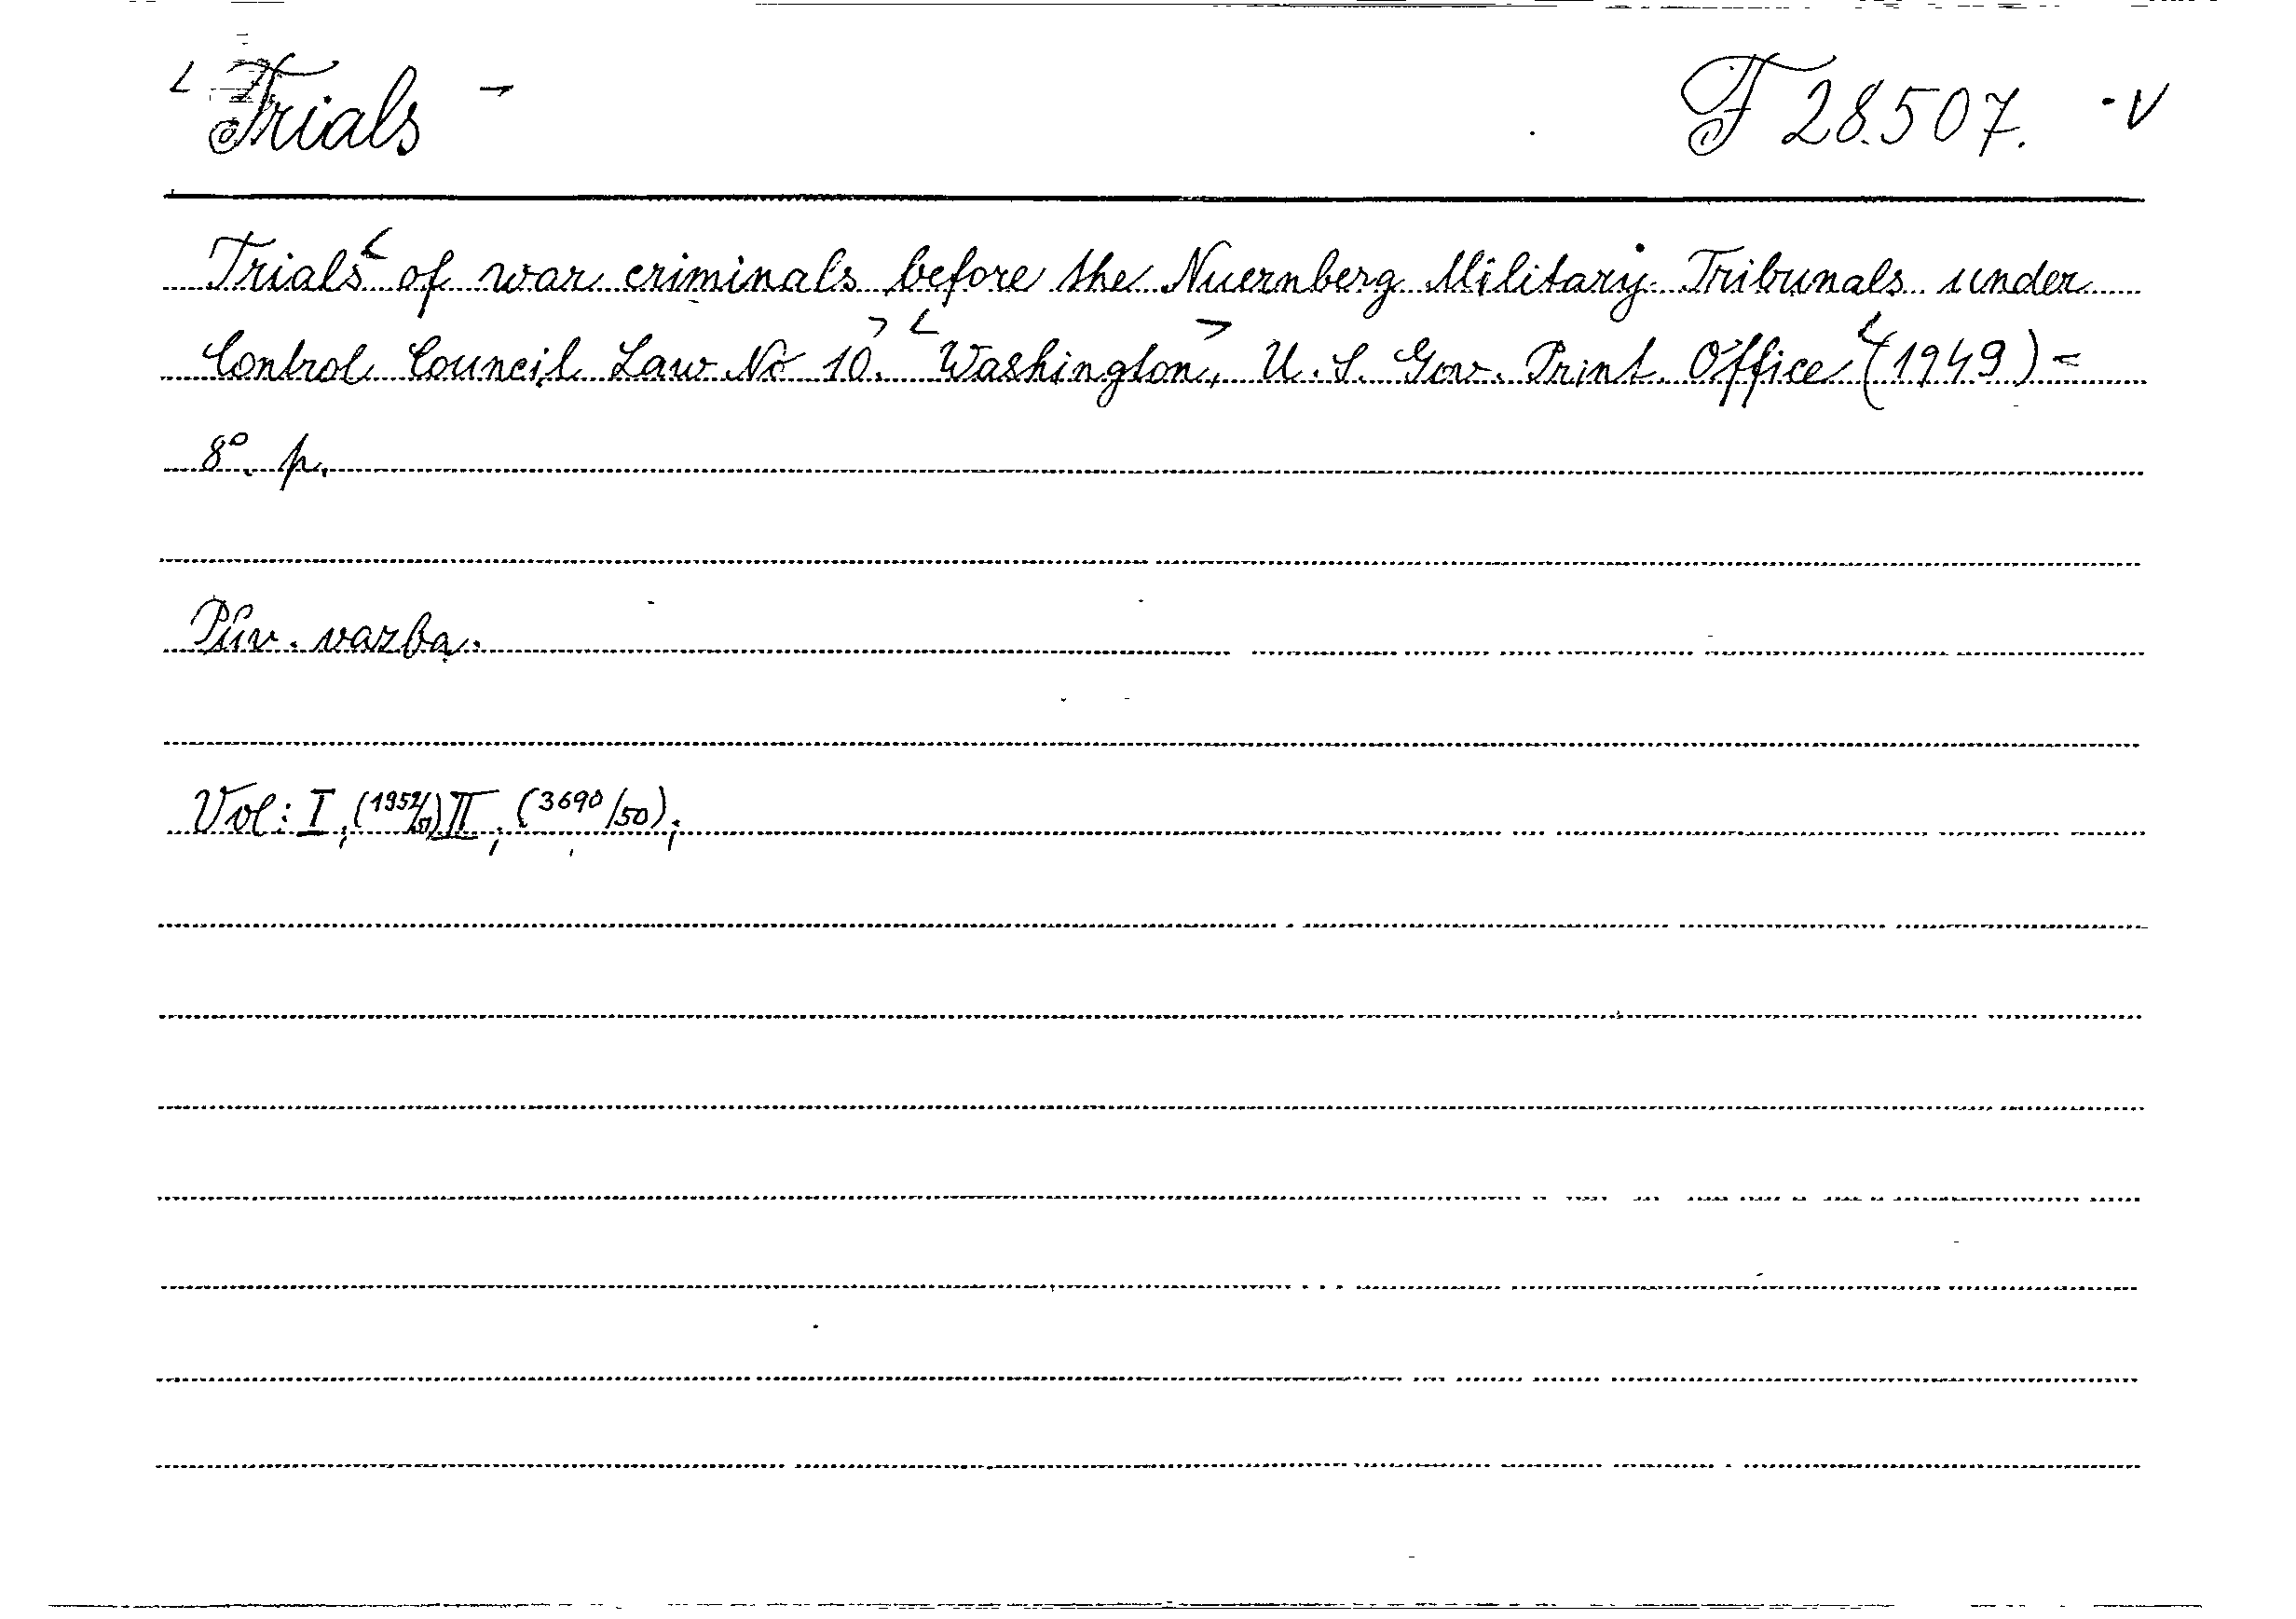 Trials F 28.507. V
Trials of war criminals before the Nuernberg Military Tribunals under
Control Council Law No 10. Washington, U.S. Gov. Print. Office (1949) =
8°. p.
Pův. vazba.
Vol: I, II, (3690/50);